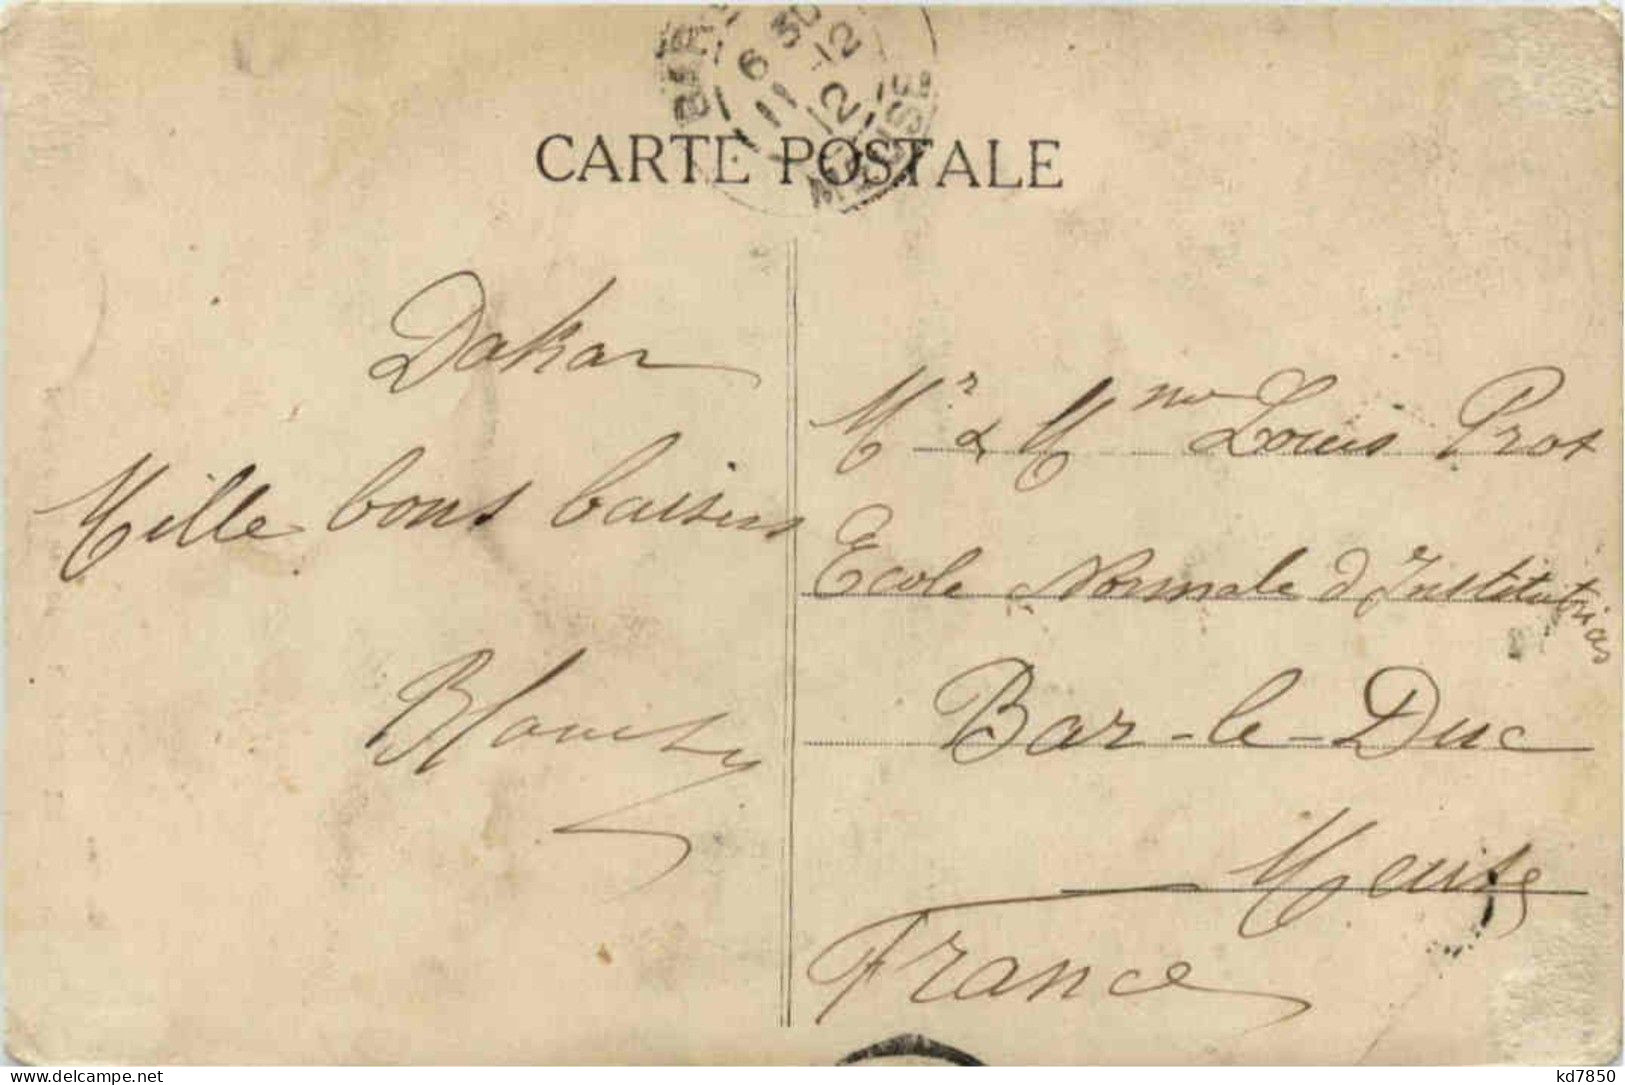 BAR
6 30
11 -12
12
MEUSE
CARTE POSTALE
Dakar
Mille bons baisers
Mr & Mme Louis Prot
Ecole Normale d'Institutrices
Bar-le-Duc
Meuse
France
kd7850